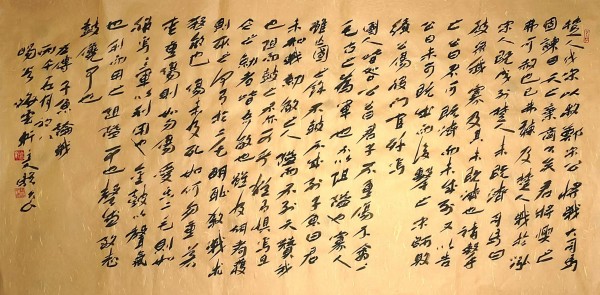 楚人伐宋以救鄭宋公將戰大司馬
固諫曰天之棄商久矣君將興之
弗可赦也已弗聽及楚人戰於泓
宋人既成列楚人未既濟司馬曰
彼眾我寡及其未既濟也請擊
之公曰不可既濟而未成列又以告
公曰未可既陳而後擊之宋師敗
績公傷股門官殲焉
國人皆咎公公曰君子不重傷不禽二
毛古之為軍也不以阻隘也寡人
雖亡國之餘不鼓不成列子魚曰君
未知戰勍敵之人隘而不列天贊我
也阻而鼓之不亦可乎猶有懼焉且
今之勍者皆吾敵也雖及胡耇獲
則取之何有於二毛明恥教戰求
殺敵也傷未及死如何勿重若
愛重傷則如勿傷愛其二毛則如
服焉三軍以利用也金鼓以聲氣
也利而用之阻隘可也聲盛致志
鼓儳可也
左傳子魚論戰